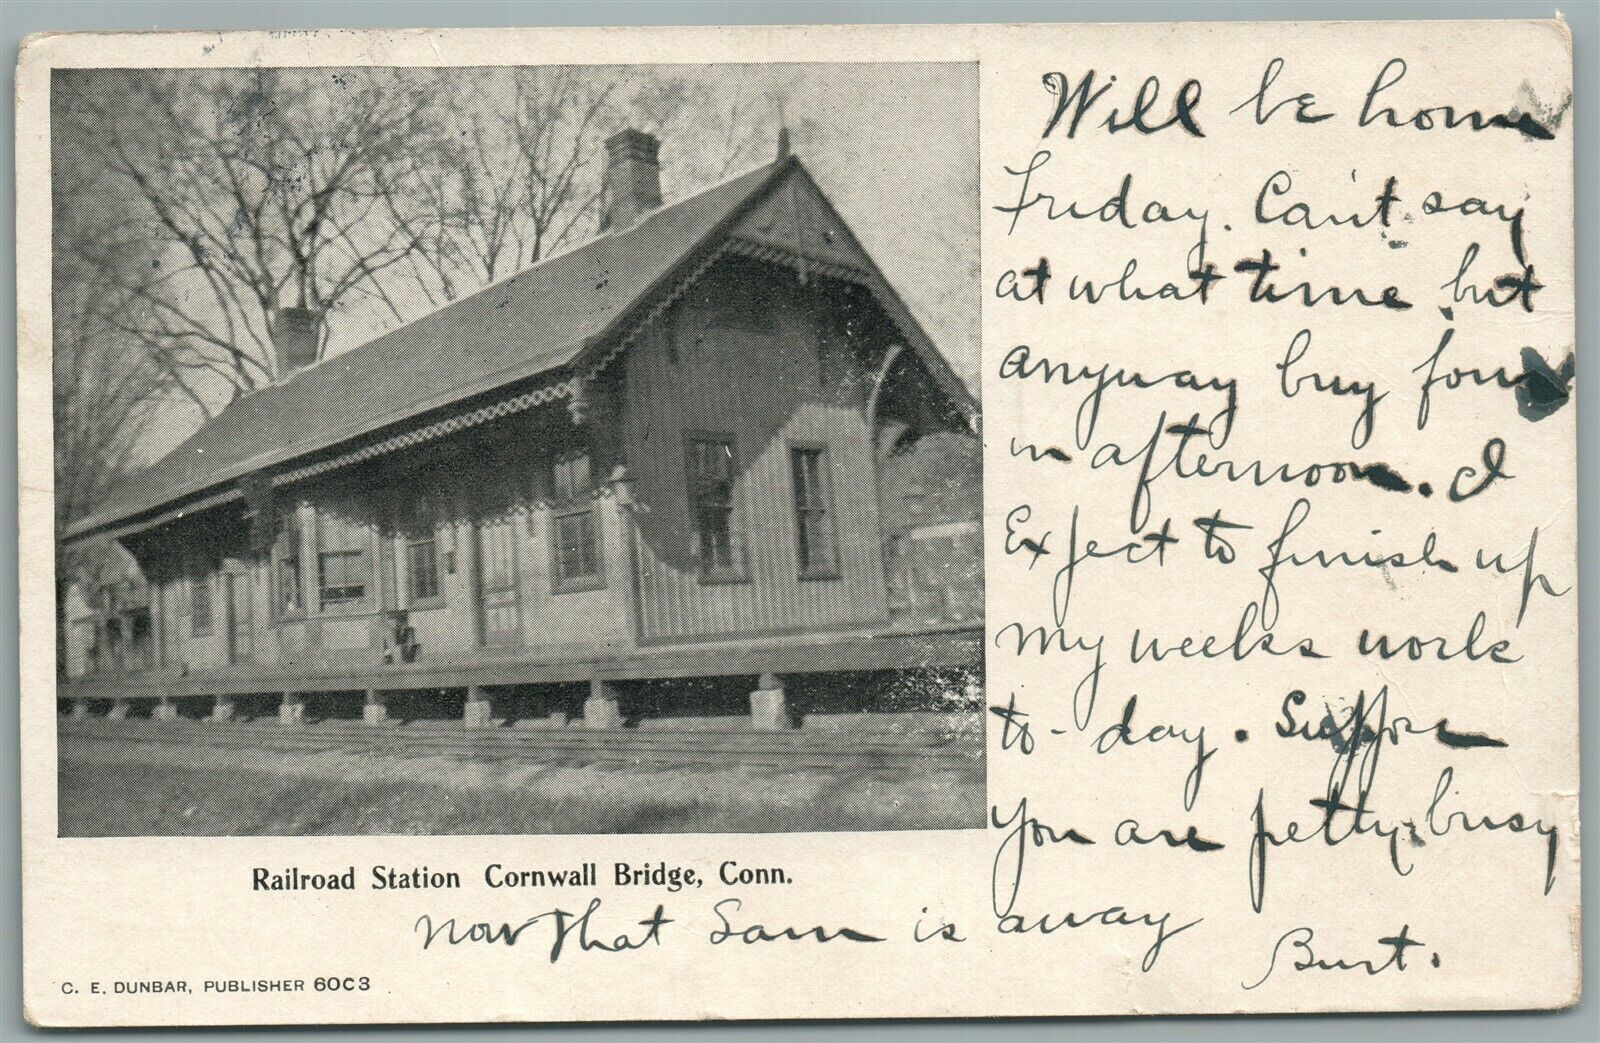 Will be home
Friday. Can't say
at what time but
anyway by four
in afternoon. I
Expect to finish up
my weeks work
to-day. Suppose
you are petty busy
now that Sam is away
Burt.
Railroad Station Cornwall Bridge, Conn.
C. E. DUNBAR, PUBLISHER 60C3